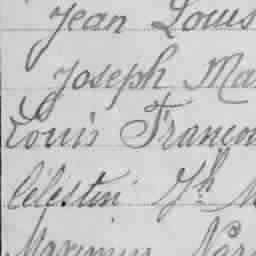 Jean Louis
Joseph Ma
Louis Françoi
Célestin Jh M
Maximin Nar